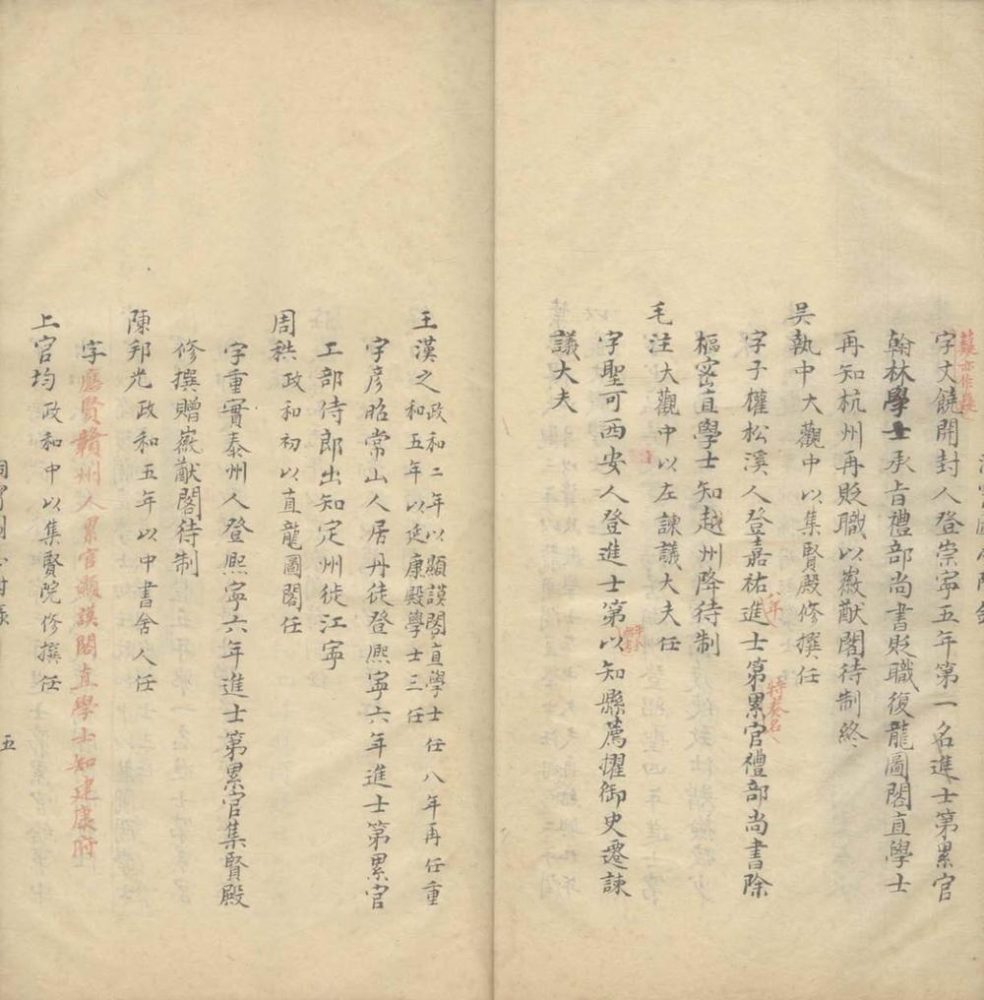 字文饒開封人登崇寧五年第一名進士第累官
翰林學士承旨禮部尚書貶職復龍圖閣直學士
再知杭州再貶職以徽猷閣待制終
吳執中大觀中以集賢殿修撰任
字子權松溪人登嘉祐八年進士第累官禮部尚書除
特奏名
樞密直學士知越州降待制
毛注大觀中以左諫議大夫任
字聖可西安人登進士第以知縣薦擢御史遷諫
議大夫
王漢之政和二年以顯謨閣直學士任八年再任重
和五年以延康殿學士三任
字彥昭常山人居丹徒登熙寧六年進士第累官
工部侍郎出知定州徙江寧
周秩政和初以直龍圖閣任
字重實泰州人登熙寧六年進士第累官集賢殿
修撰贈徽猷閣待制
陳邦光政和五年以中書舍人任
字應賢贛州人累官顯謨閣直學士知建康府
上官均政和中以集賢院修撰任
五